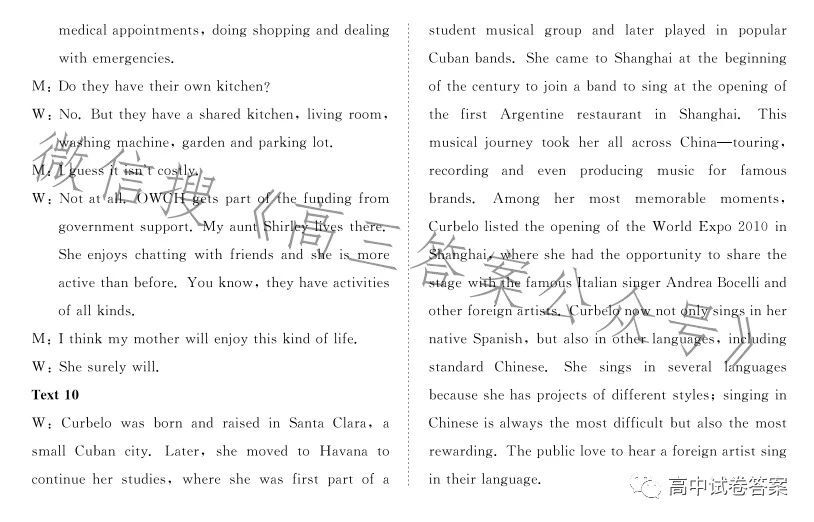 medical appointments, doing shopping and dealing
with emergencies.
M: Do they have their own kitchen?
W: No. But they have a shared kitchen, living room,
washing machine, garden and parking lot.
M: I guess it isn't costly.
W: Not at all. OWCH gets part of the funding from
government support. My aunt Shirley lives there.
She enjoys chatting with friends and she is more
active than before. You know, they have activities
of all kinds.
M: I think my mother will enjoy this kind of life.
W: She surely will.
Text 10
W: Curbelo was born and raised in Santa Clara, a
small Cuban city. Later, she moved to Havana to
continue her studies, where she was first part of a
student musical group and later played in popular
Cuban bands. She came to Shanghai at the beginning
of the century to join a band to sing at the opening of
the first Argentine restaurant in Shanghai. This
musical journey took her all across China—touring,
recording and even producing music for famous
brands. Among her most memorable moments,
Curbelo listed the opening of the World Expo 2010 in
Shanghai, where she had the opportunity to share the
stage with the famous Italian singer Andrea Bocelli and
other foreign artists. Curbelo now not only sings in her
native Spanish, but also in other languages, including
standard Chinese. She sings in several languages
because she has projects of different styles; singing in
Chinese is always the most difficult but also the most
rewarding. The public love to hear a foreign artist sing
in their language.
微信搜《高三答案公众号》
高中试卷答案